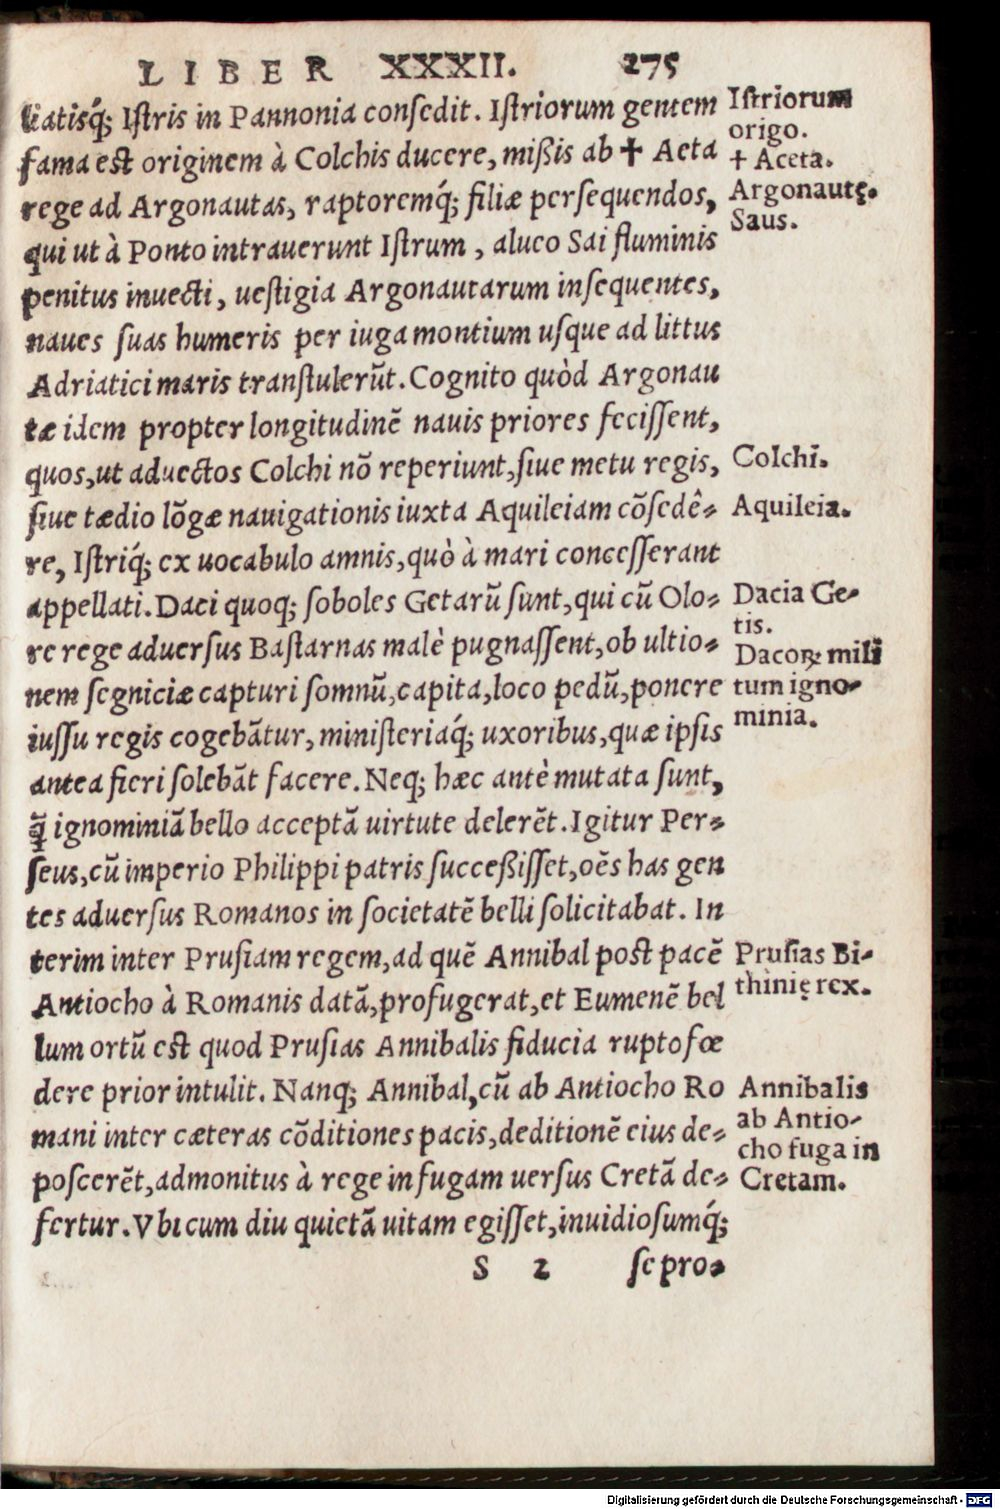 LIBER XXXII. 275
liatisq́; Iſtris in Pannonia conſedit. Iſtriorum gentem
fama est originem à Colchis ducere, mißis ab ✝ Aeta
rege ad Argonautas, raptoremq́; filiæ perſequendos,
qui ut à Ponto intrauerunt Iſtrum, aluco Sai fluminis
penitus inuecti, ueſtigia Argonautarum inſequentes,
naues ſuas humeris per iuga montium uſque ad littus
Adriatici maris tranſtulerũt. Cognito quòd Argonau
tæ idem propter longitudinẽ nauis priores feciſſent,
quos, ut aduectos Colchi nõ reperiunt, ſiue metu regis,
ſiue tædio lõgæ nauigationis iuxta Aquileiam cõſedê-
re, Iſtriq́; ex uocabulo amnis, quò à mari conceſſerant
appellati. Daci quoq; ſoboles Getarũ ſunt, qui cũ Olo-
re rege aduerſus Baſtarnas malè pugnaſſent, ob ultio-
nem ſegniciæ capturi ſomnũ, capita, loco pedũ, ponere
iuſſu regis cogebãtur, miniſteriaq́; uxoribus, quæ ipſis
antea fieri ſolebãt facere. Neq; hæc antè mutata ſunt,
q̃ ignominiã bello acceptã uirtute delerẽt. Igitur Per-
ſeus, cũ imperio Philippi patris succeßiſſet, oẽs has gen
tes aduerſus Romanos in ſocietatẽ belli ſolicitabat. In
terim inter Pruſiam regem, ad quẽ Annibal poſt pacẽ
Antiocho à Romanis datã, profugerat, et Eumenẽ bel
lum ortũ est quod Pruſias Annibalis fiducia rupto fœ
dere prior intulit. Nanq; Annibal, cũ ab Antiocho Ro
mani inter cæteras cõditiones pacis, deditionẽ eius de-
poſcerẽt, admonitus à rege in fugam uerſus Cretã de-
fertur. Vbi cum diu quietã uitam egiſſet, inuidioſumq́;
S 2 ſe pro-
Iſtriorum
origo.
✝ Aceta.
Argonautę.
Saus.
Colchi.
Aquileia.
Dacia Ge-
tis.
Dacoꝝ mili
tum igno-
minia.
Pruſias Bi-
thinię rex.
Annibalis
ab Antio-
cho fuga in
Cretam.
Digitalisierung gefördert durch die Deutsche Forschungsgemeinschaft - DFG